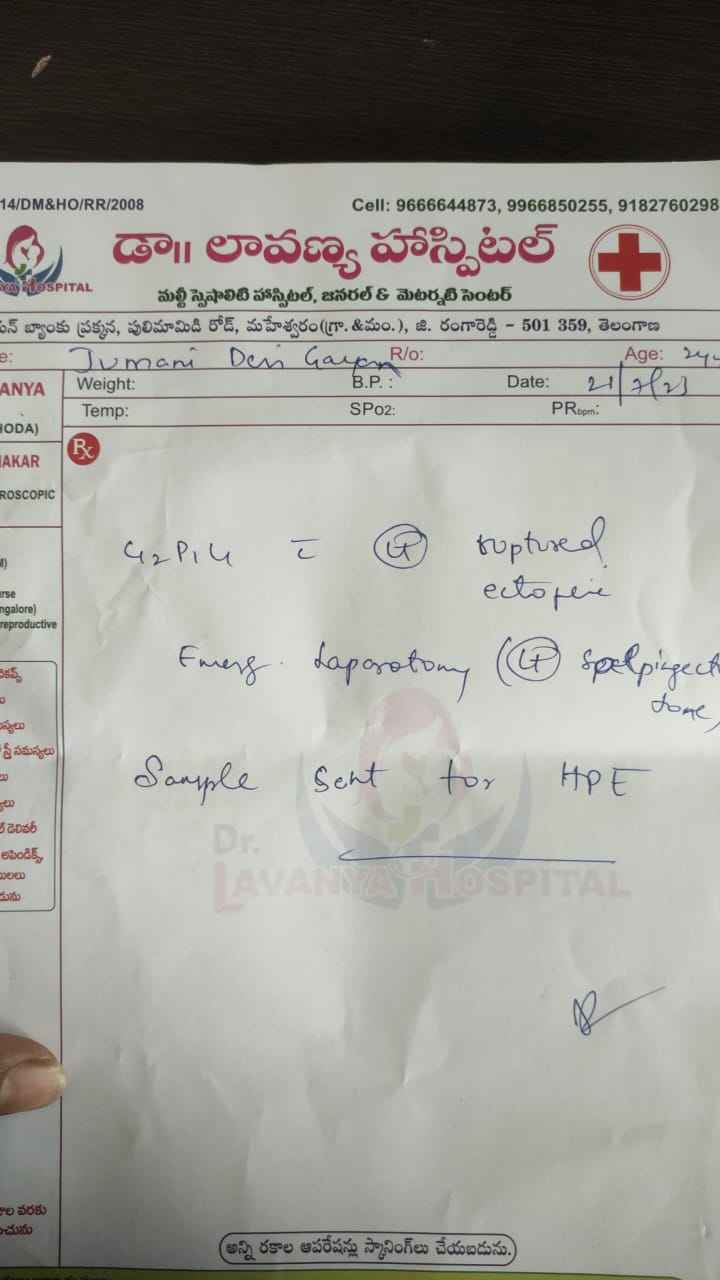 14/DM&HO/RR/2008
Cell: 9666644873, 9966850255, 9182760298
డా|| లావణ్య హాస్పిటల్
YA HOSPITAL
మల్టీ స్పెషాలిటి హాస్పిటల్, జనరల్ & మెటర్నటి సెంటర్
బ్యాంకు ప్రక్కన, పులిమామిడి రోడ్, మహేశ్వరం(గ్రా.&మం.), జి. రంగారెడ్డి - 501 359, తెలంగాణ
e: Jumani Devi R/o: Age:
Weight: B.P. : Date: 21/7/23
Temp: SPo2: PRbpm:
ANYA
HODA)
AKAR
ROSCOPIC
M)
urse
ngalore)
reproductive
Rx
G2P1L1 c̄ Lt ruptured
ectopic
Emerg. Laparotomy (Lt
done)
Sample sent for HPE
Dr.
LAVANYA HOSPITAL
స్త్రీ సమస్యలు
ల్ డెలివరీ
అపెండిక్స్,
అన్ని రకాల ఆపరేషన్లు స్కానింగ్‌లు చేయబడును.